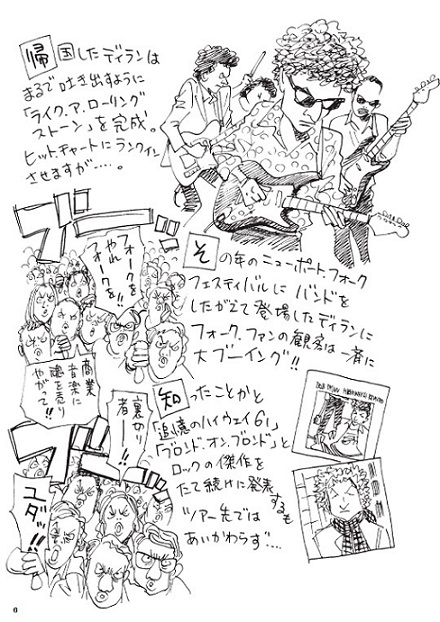 帰国したディランは
まるで吐き出すように
「ライク.ア.ローリング
ストーン」を完成。
ヒットチャートにランクイン
させますが‥‥。
ブー
フォークを
やれ
フォークを!!
その年のニューポートフォーク
フェスティバルに バンドを
したがえて登場したディランに
フォーク.ファンの観客は一斉に
大ブーイング!!
商業
音楽に
魂を売り
やがって!!
裏切り
者ーー!!
ブー
ユダッ!!
知ったことかと
「追憶のハイウェイ61」
「ブロンド.オン.ブロンド」と
ロックの傑作を
たて続けに発表するも
ツアー先では
あいかわらず‥‥
6